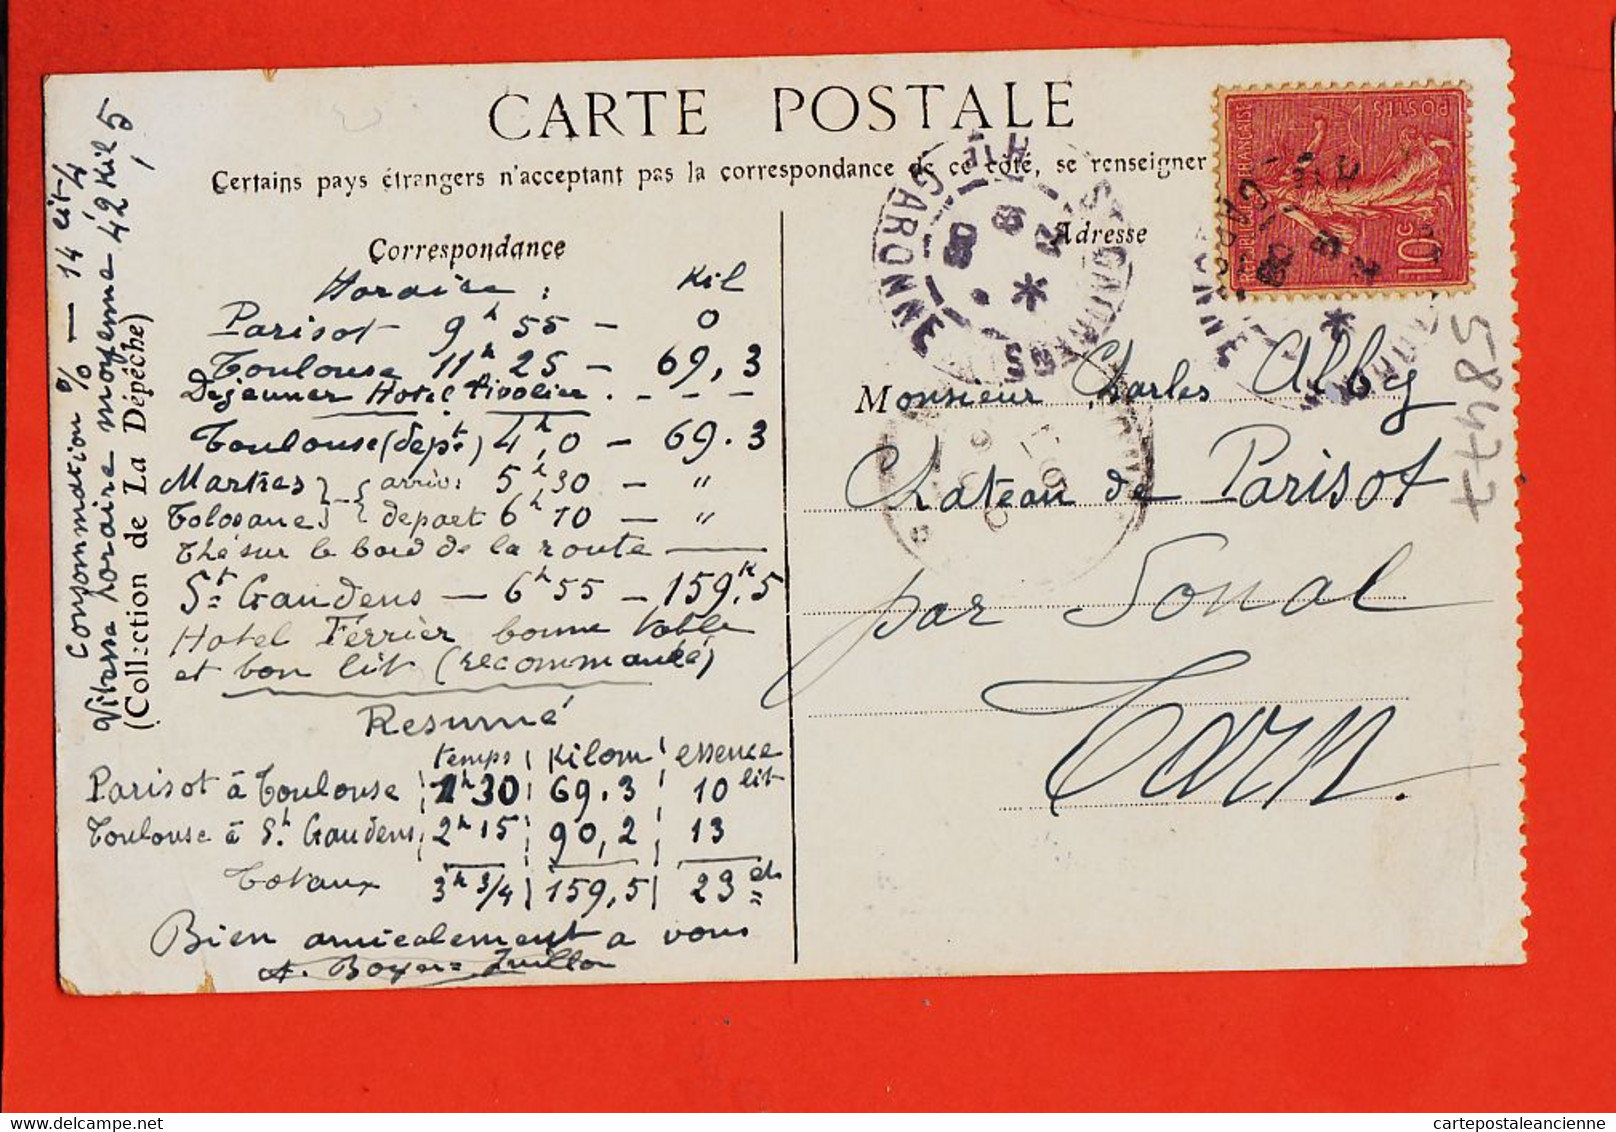 CARTE POSTALE
Certains pays étrangers n'acceptent pas la correspondance de ce côté, se renseigner
Correspondance
Adresse
Horaire : Kil
Parisot 9h 55 — 0
Toulouse 11h 25 — 69,3
Dejeuner Hotel Tivolier . - - -
Toulouse (dept) 4h,0 — 69.3
Martres } { arriv: 5h30 — "
Tolosane } { depart 6h10 — "
Thé sur le bord de la route —
St Gaudens — 6h55 — 159k,5
Hotel Ferrier bonne table
et bon lit (recommandé)
Resumé
temps kilom essence
Parisot à Toulouse 1h30 69.3 10 lit
Toulouse à St Gaudens 2h15 90,2 13
Totaux 3h 3/4 159,5 23
Bien amicalement a vous
A. Boyer
Consommation % — 14 lit 4
Vitesse horaire moyenne 42 Kil,5
(Collection de La Dépêche)
Monsieur Charles Alby
Chateau de Parisot
par Sonal
Tarn.
ST GAUDENS
HTE GARONNE
POSTES
REPUBLIQUE FRANCAISE
10c
58477
cartepostaleancienne
delcampe.net